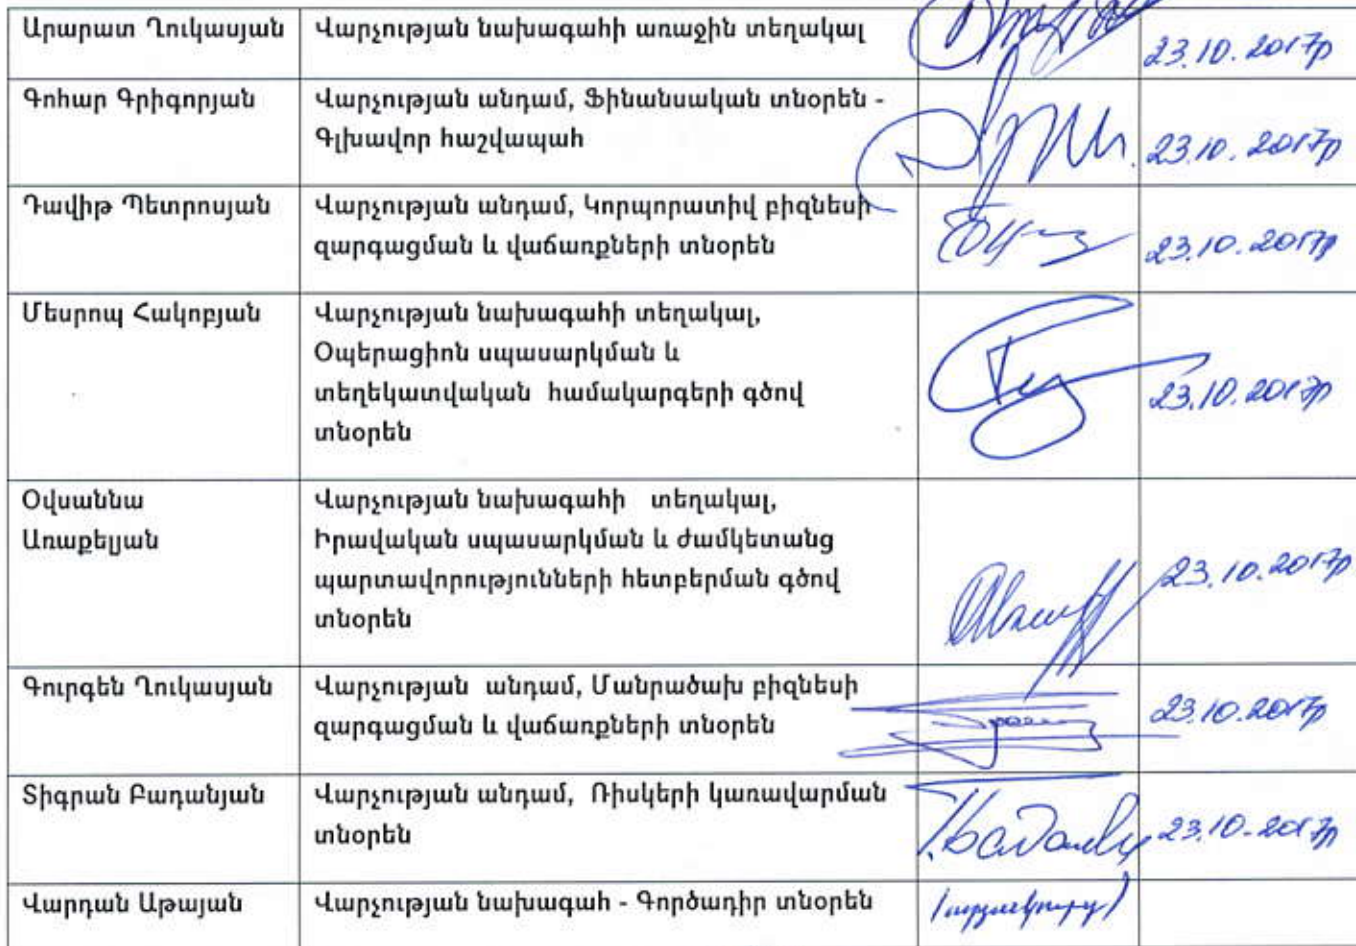 Արարատ Ղուկասյան Վարչության նախագահի առաջին տեղակալ 23.10.2017թ
Գոհար Գրիգորյան Վարչության անդամ, Ֆինանսական տնօրեն -
Գլխավոր հաշվապահ 23.10.2017թ
Դավիթ Պետրոսյան Վարչության անդամ, Կորպորատիվ բիզնեսի
զարգացման և վաճառքների տնօրեն 23.10.2017թ
Մեսրոպ Հակոբյան Վարչության նախագահի տեղակալ,
Օպերացիոն սպասարկման և
տեղեկատվական համակարգերի գծով 23.10.2017թ
տնօրեն
Օվսաննա Վարչության նախագահի տեղակալ,
Առաքելյան Իրավական սպասարկման և ժամկետանց
պարտավորությունների հետբերման գծով 23.10.2017թ
տնօրեն
Գուրգեն Ղուկասյան Վարչության անդամ, Մանրածախ բիզնեսի
զարգացման և վաճառքների տնօրեն 23.10.2017թ
Տիգրան Բադանյան Վարչության անդամ, Ռիսկերի կառավարման
տնօրեն 23.10.2017թ
Վարդան Աթայան Վարչության նախագահ - Գործադիր տնօրեն